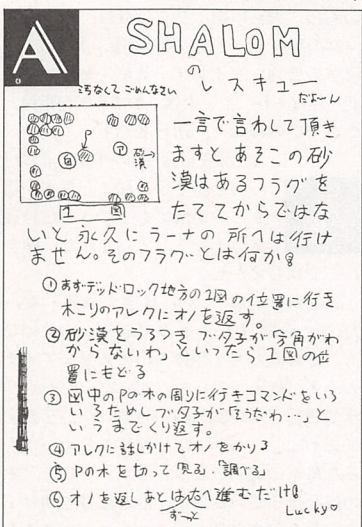 A
SHALOM
の
レスキュー
だよ〜ん
汚なくて ごめんなさい
P
砂漠
1図
一言で言わして頂き
ますと あそこの砂
漠はあるフラグを
たててからではな
いと永久にラーナの所へは行け
ません。そのフラグとは何か!
①まずデッドロック地方の1図の位置に行き
木こりのアレクにオノを返す。
②砂漠をうろつきブタ子が「方角がわ
からないわ」といったら1図の位
置にもどる
③図中のPの木の周りに行きコマンドをいろ
いろためしブタ子が「そうだわ…」と
いうまでくり返す。
④アレクに話しかけてオノをかりる
⑤Pの木を切って「見る」「調べる」
⑥オノを返しあとは左へ進むだけ!
ずーっと
Lucky♡